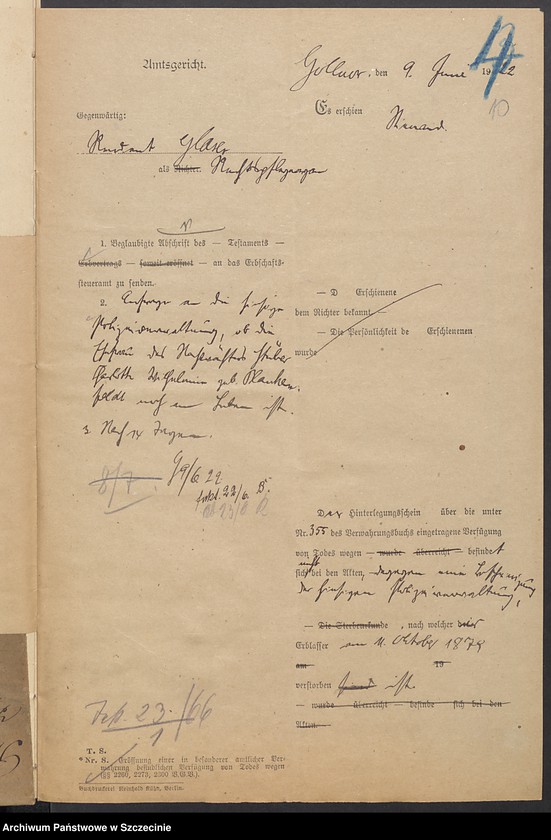 Amtsgericht.
Gollnow, den 9. Juni 1922
4
10
Gegenwärtig:
Es erschien
Niemand.
Rendant Glaser
als Richter. Rechtspfleger
1. Beglaubigte Abschrift des — Testaments —
Erbvertrags — soweit eröffnet — an das Erbschafts-
steueramt zu senden.
2. Anfrage an die hiesige
Polizeiverwaltung, ob die
Ehefrau des Nachtwächters
Charlotte Wilhelmine geb. Blanken-
feldt noch am Leben ist.
3. Nach 14 Tagen.
8/7.
9/6 22
22/6. B.
23/6
— D Erschienene
dem Richter bekannt —
— Die Persönlichkeit de Erschienenen
wurde
Der Hinterlegungsschein über die unter
Nr. 355 des Verwahrungsbuchs eingetragene Verfügung
von Todes wegen — wurde überreicht — befindet
sich nicht bei den Akten, dagegen eine Bescheinigung
der hiesigen Polizeiverwaltung,
— Die Sterbeurkunde , nach welcher der
Erblasser am 11. Oktober 1878
am 19
verstorben ist.
— wurde überreicht — befinde sich bei den
Akten.
23. 1/66
T. S.
*Nr. 8. Eröffnung einer in besonderer amtlicher Ver-
wahrung befindlichen Verfügung von Todes wegen
(§§ 2260, 2273, 2300 B.G.B.).
Buchdruckerei Reinhold Kühn, Berlin.
Archiwum Państwowe w Szczecinie